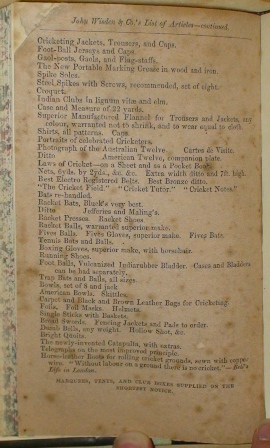 John Wisden & Co.'s List of Articles—continued.
Cricketing Jackets, Trousers, and Caps.
Foot-Ball Jerseys and Caps.
Goal-posts, Goals, and Flag-staffs.
The New Portable Marking Grease in wood and iron.
Spike Soles.
Steel Spikes with Screws, recommended, set of eight.
Croquet.
Indian Clubs in lignum vitæ and elm.
Case and Measure of 22 yards.
Superior Manufactured Flannel for Trousers and Jackets, any
colour, warranted not to shrink, and to wear equal to cloth.
Shirts, all patterns. Caps.
Portraits of celebrated Cricketers.
Photograph of the Australian Twelve. Cartes de Visite.
Ditto American Twelve, companion plate.
Laws of Cricket—on a Sheet and as a Pocket Book.
Nets, 6yds. by 2yds., &c. &c. Extra width 50ins and 7ft. high.
Best Electro Registered Belts. Best Bronze ditto.
"The Cricket Field." "Cricket Tutor." "Cricket Notes."
Bats re-handled.
Racket Bats, Black's very best.
Ditto Jefferies and Maling's.
Racket Presses. Racket Shoes.
Racket Balls, warranted superior make.
Fives Balls. Fives Gloves, superior make. Fives Bats.
Tennis Bats and Balls.
Boxing Gloves, superior make, with horsehair.
Running Shoes.
Foot Balls, Vulcanized Indiarubber Bladder. Cases and Bladders
can be had separately.
Trap Bats and Balls, all sizes.
Bowls, set of 6 and jack.
American Bowls. Skittles.
Carpet and Black and Brown Leather Bags for Cricketing.
Foils. Foil Masks. Helmets.
Single Sticks with Baskets.
Broad Swords. Fencing Jackets and Pads to order.
Dumb Bells, any weight. Hollow Shot, &c.
Bright Quoits.
The newly-invented Catapulta, with extras.
Telegraphs on the most improved principle.
Horse-leather Boots for rolling cricket grounds, sewn with copper
wire. "Without labour on a ground there is no cricket."—Bell's
Life in London.
MARQUEES, TENTS, AND CLUB BOXES SUPPLIED ON THE
SHORTEST NOTICE.